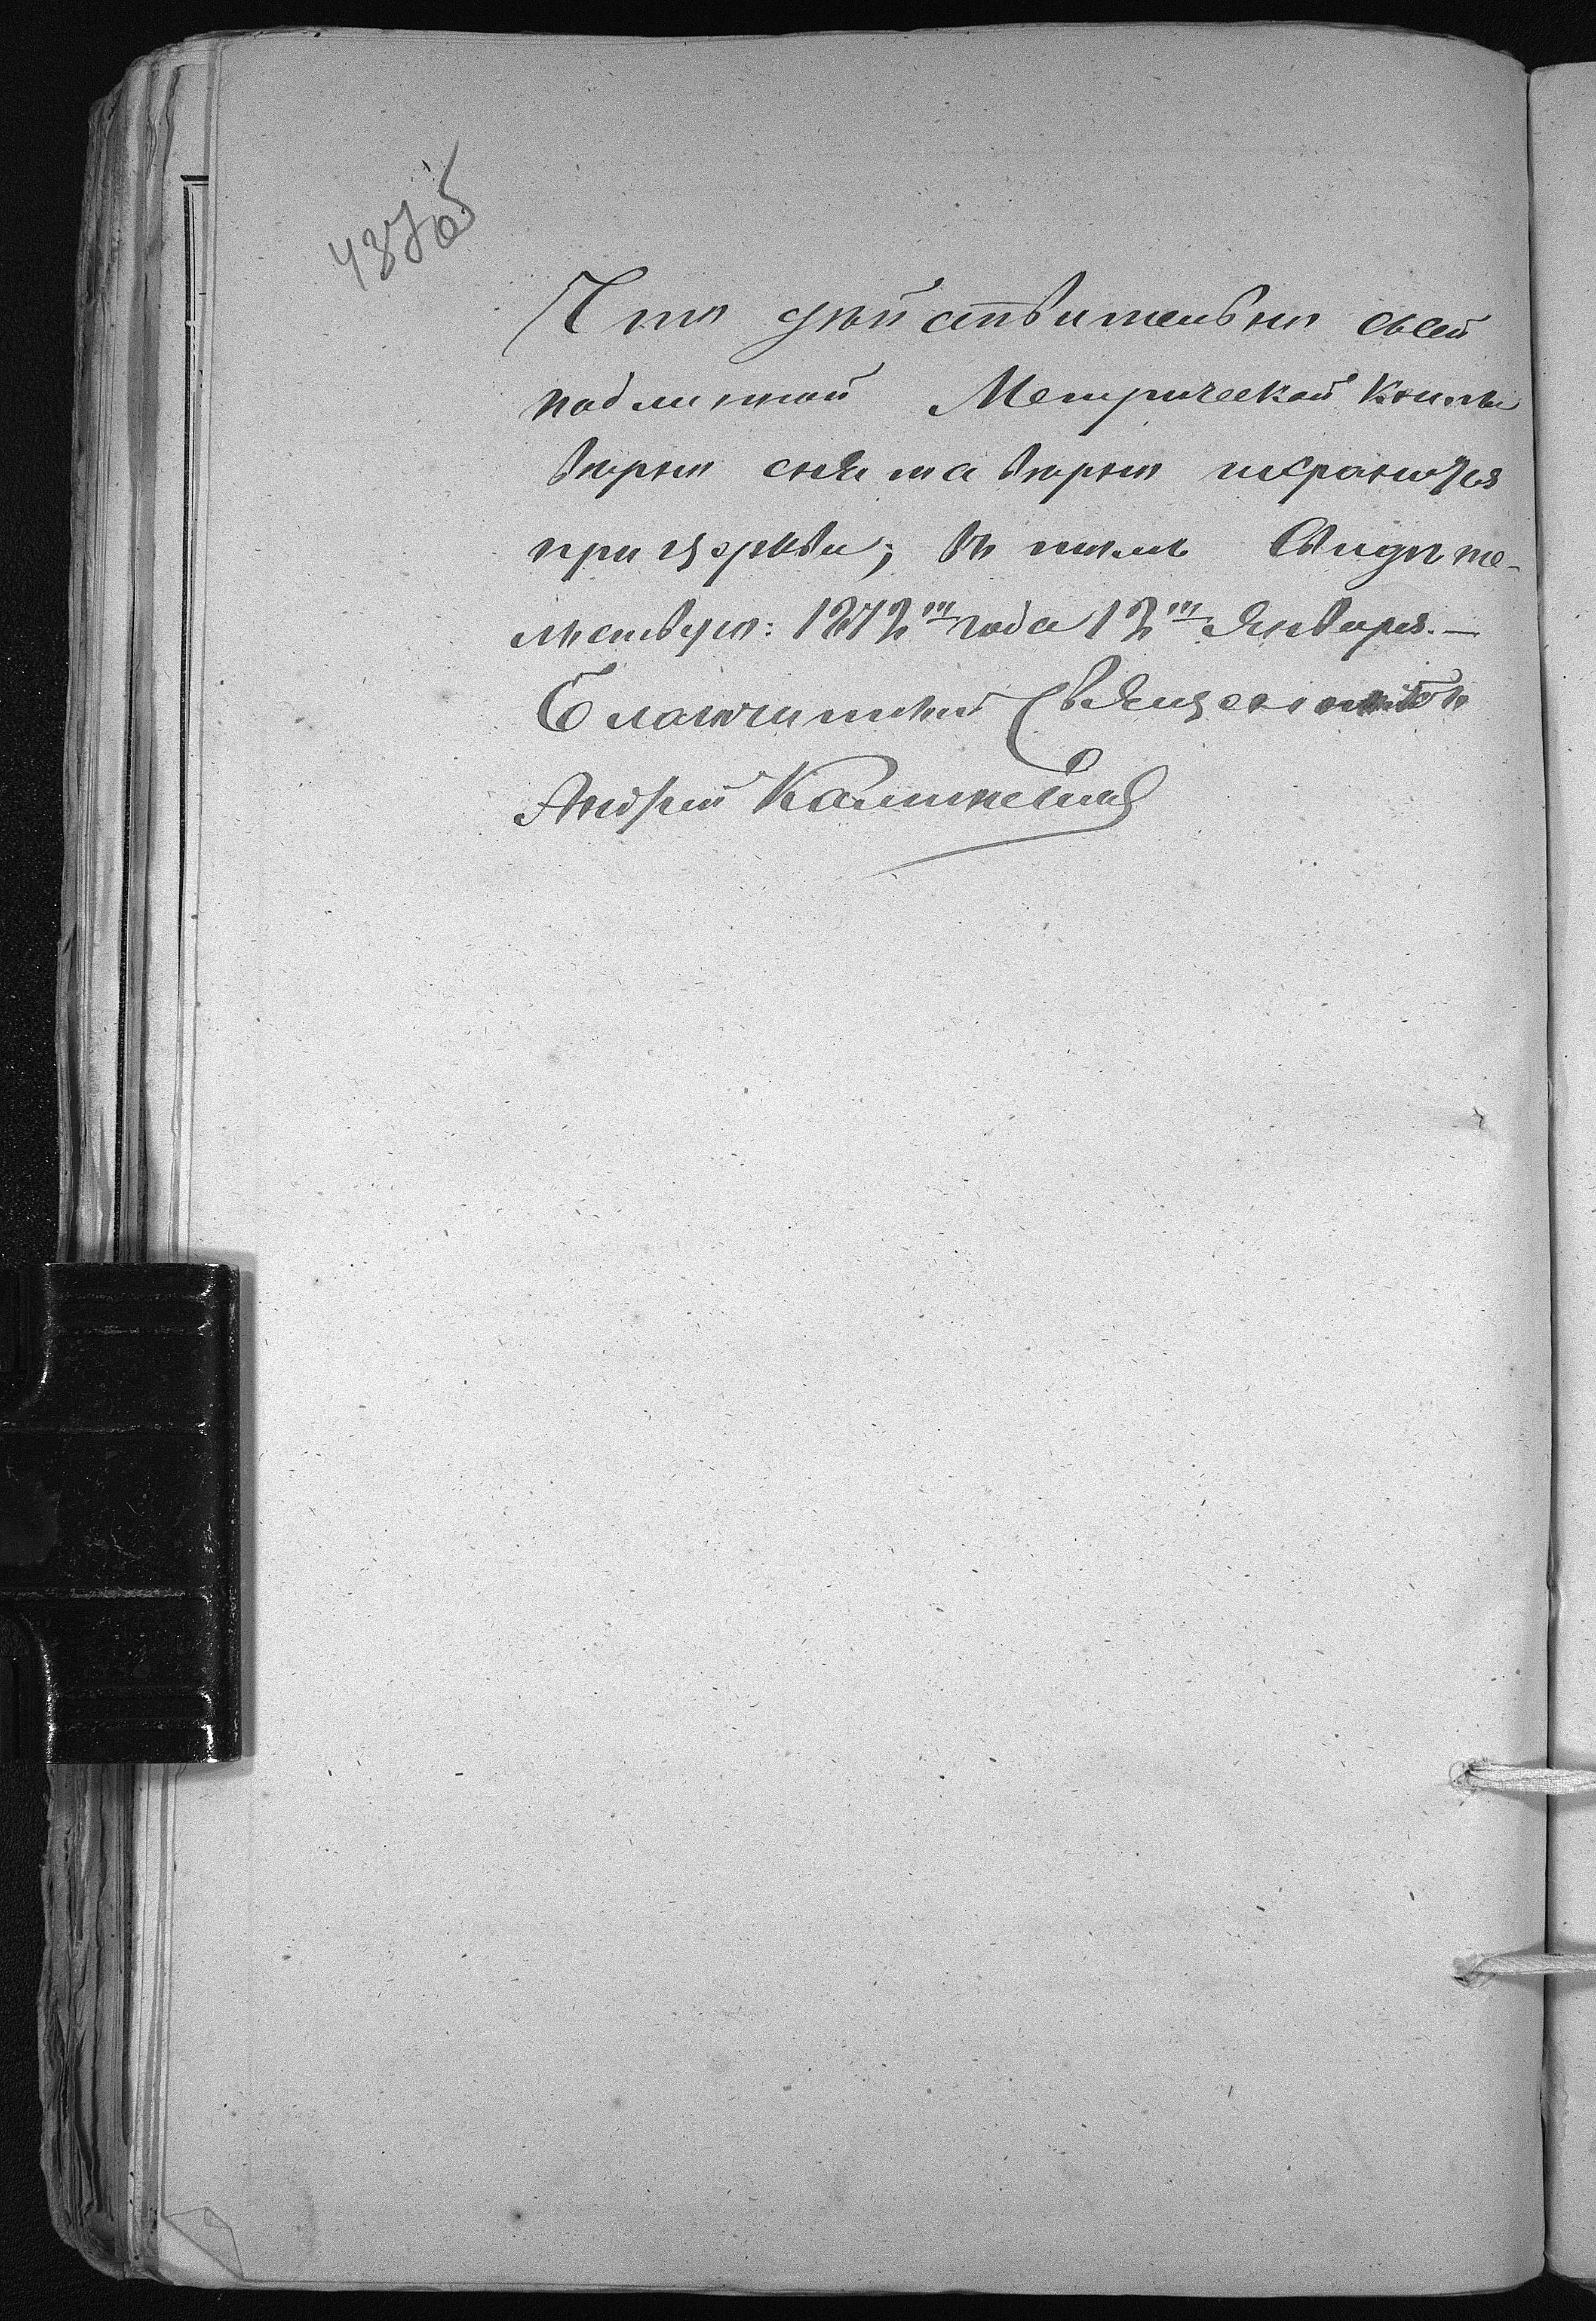 437об
Что дѣйствительно съсей
подлинной Метрической Книги
вѣрно снята вѣрно ихранится
при церкви; въ томъ Свидѣте-
льствую: 1872го года 12го Января.—
Благочинный Священникъ
Андрей